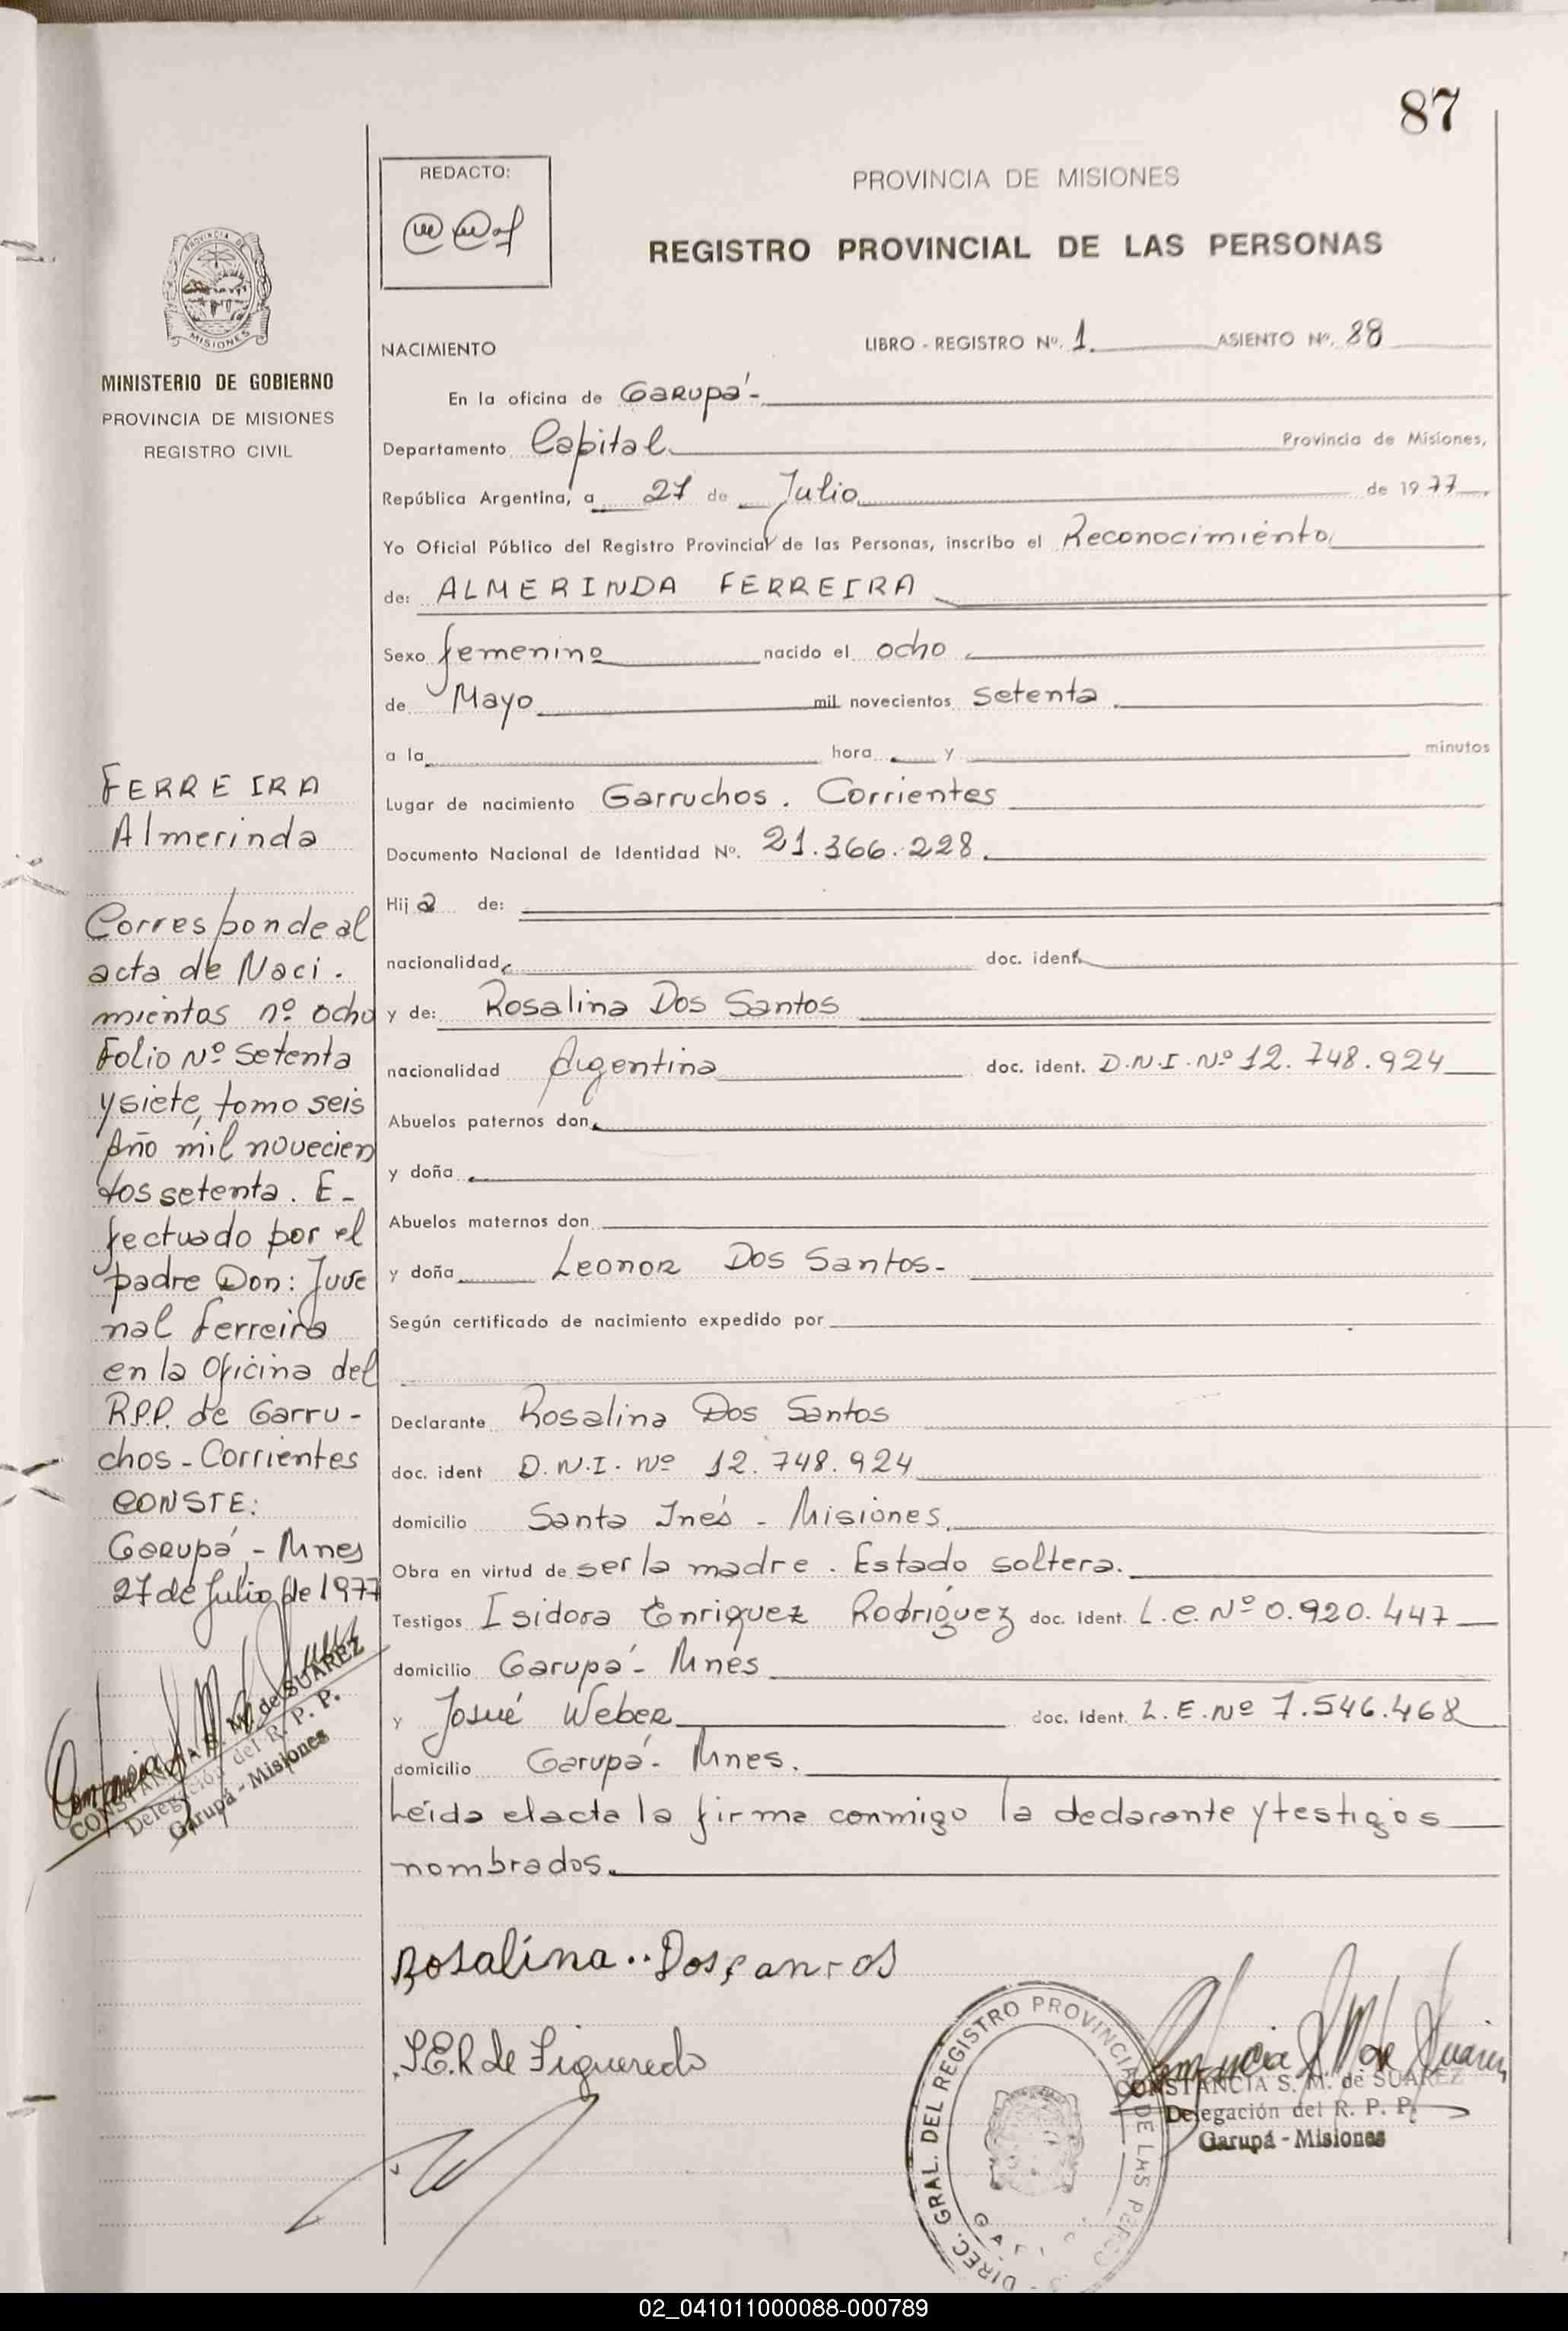 87
REDACTO:
PROVINCIA DE MISIONES
REGISTRO PROVINCIAL DE LAS PERSONAS
PROVINCIA DE
MISIONES
MINISTERIO DE GOBIERNO
PROVINCIA DE MISIONES
REGISTRO CIVIL
NACIMIENTO LIBRO - REGISTRO Nº. 1 ASIENTO Nº. 88
En la oficina de Garupá -
Departamento Capital Provincia de Misiones,
República Argentina, a 27 de Julio de 1977
Yo Oficial Público del Registro Provincial de las Personas, inscribo el Reconocimiento
de: ALMERINDA FERREIRA
Sexo femenino nacido el ocho
de Mayo mil novecientos setenta
a la hora y minutos
Lugar de nacimiento Garruchos. Corrientes
Documento Nacional de Identidad Nº. 21.366.228
Hija de:
nacionalidad doc. ident.
y de: Rosalina Dos Santos
nacionalidad Argentina doc. ident. D.N.I. Nº 12.748.924
Abuelos paternos don
y doña
Abuelos maternos don
y doña Leonor Dos Santos -
Según certificado de nacimiento expedido por
Declarante Rosalina Dos Santos
doc. ident D.N.I. Nº 12.748.924
domicilio Santa Inés - Misiones
Obra en virtud de ser la madre. Estado soltera.
Testigos Isidora Enriquez Rodríguez doc. Ident. L.C. Nº 0.920.447
domicilio Garupá - Mnes
y Josué Weber doc. Ident. L.E. Nº 7.546.468
domicilio Garupá - Mnes.
Leída el acta la firma conmigo la declarante y testigos
nombrados.
FERREIRA
Almerinda
Corresponde al
acta de Naci.
mientos nº ocho
Folio Nº setenta
y siete, tomo seis
Año mil novecien
tos setenta. E-
fectuado por el
padre Don: Juve
nal Ferreira
en la Oficina del
R.P.P. de Garru-
chos - Corrientes
CONSTE:
Garupá - Mnes
27 de Julio de 1977
CONSTANCIA S. M. de SUAREZ
Delegación del R. P. P.
Garupá - Misiones
Rosalina Dos Santos
I.E.R de Figueredo
DIREC. GRAL. DEL REGISTRO PROVINCIAL DE LAS PERSO
Constancia S M de Suarez
CONSTANCIA S. M. de SUAREZ
Delegación del R. P. P.
Garupá - Misiones
02_041011000088-000789